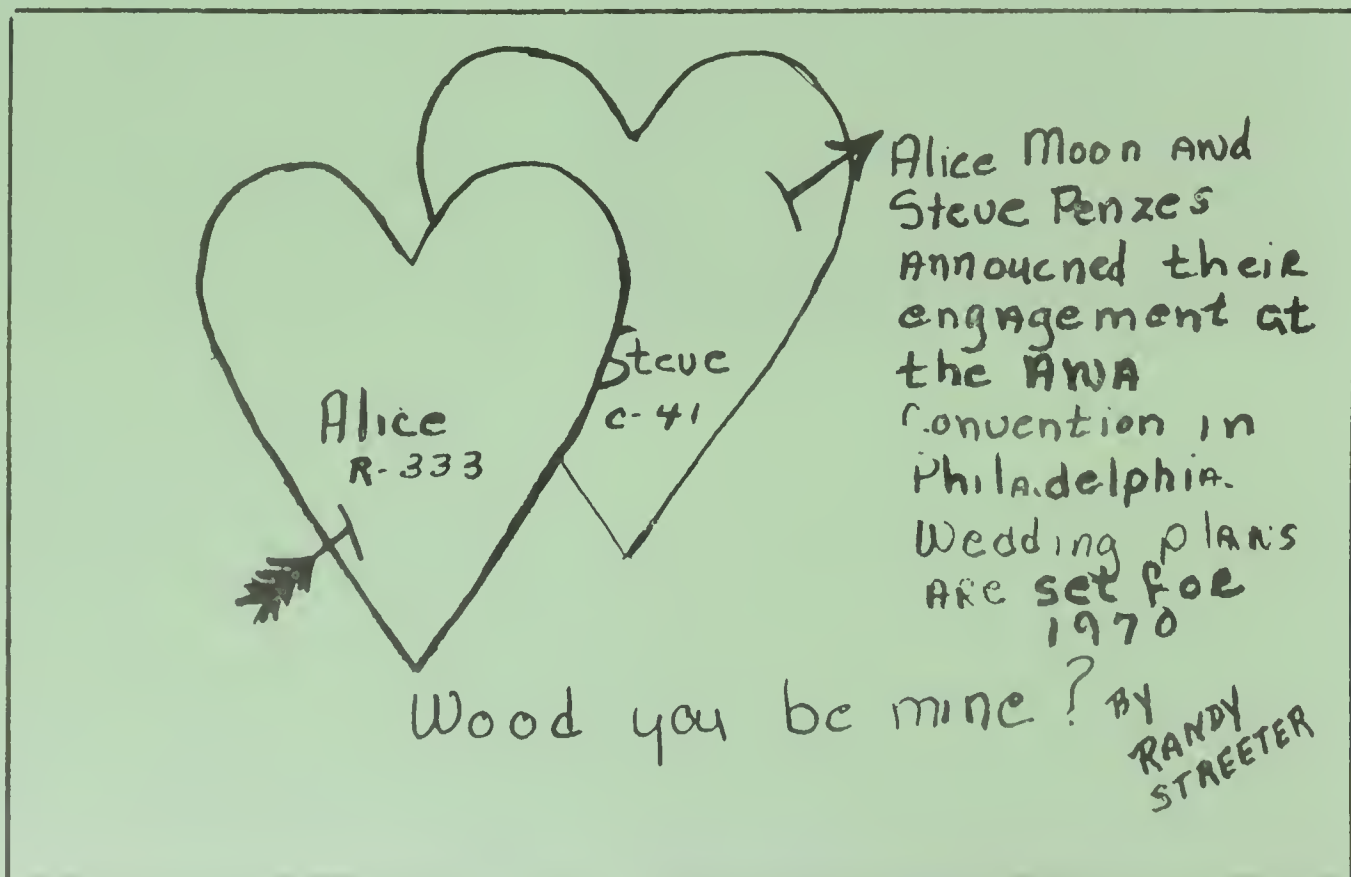 Alice
R-333
Steve
C-41
Alice Moon AND
Steve Penzes
ANNOUCNED theiR
engAgement at
the ANA
Convention in
PhilAdelphiA.
Wedding plANS
ARe set foR
1970
Wood you be mine?
BY
RANDY
STREETER